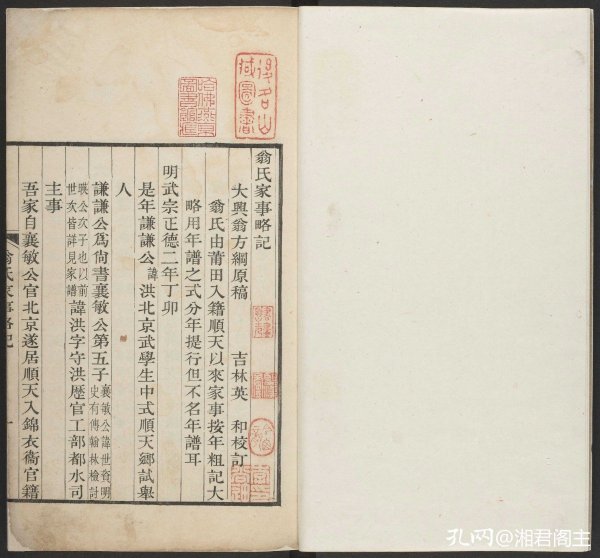 翁氏家事略記
大興翁方綱原稿　吉林英　和校訂
翁氏由莆田入籍順天以來家事按年粗記大
略用年譜之式分年提行但不名年譜耳
明武宗正德二年丁卯
是年謙謙公諱洪北京武學生中式順天鄉試舉
人
謙謙公爲尙書襄敏公第五子襄敏公諱世資明
史有傳翰林檢討
瓛公次子也以前
世次皆詳見家譜諱洪字守洪歷官工部都水司
主事
吾家自襄敏公官北京遂居順天入錦衣衞官籍
翁氏家事略記
一
哈佛燕京
圖書館藏
孔网@湘君阁主